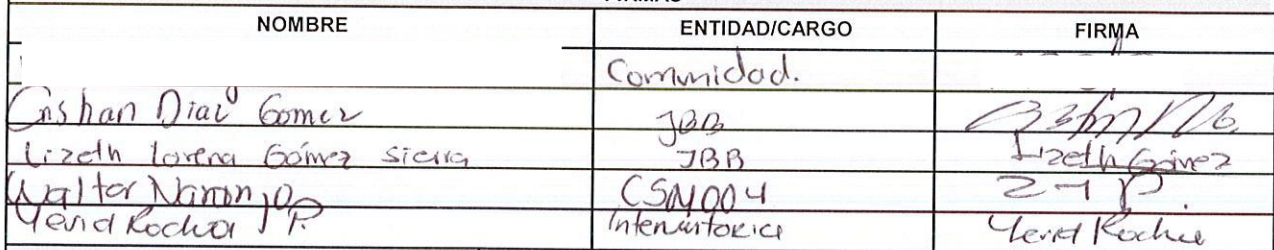 NOMBRE ENTIDAD/CARGO FIRMA
Comunidad.
Cristian Diaz Gomez JBB
Lizeth Lorena Gómez Sierra JBB Lizeth Gómez
Walter Naranjo CSM004
Yerid Rocha P. Interventoría Yerid Rocha